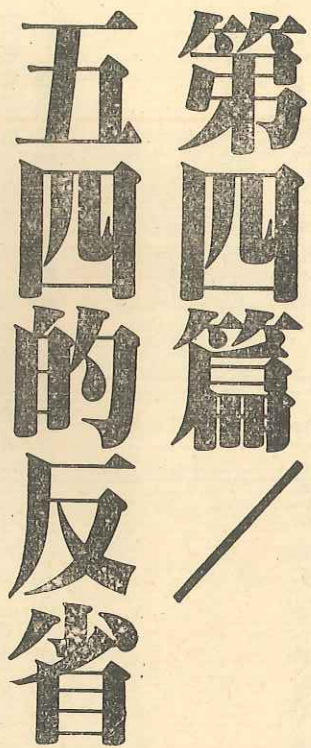 第四篇／
五四的反省